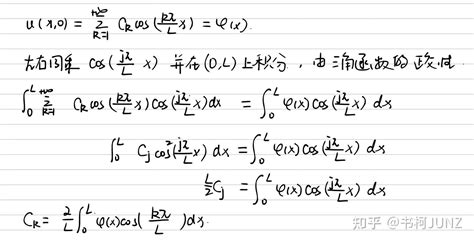 u(x,0) = Σ_{k=1}^{+∞} C_k cos(kπ/L x) = φ(x).
左右同乘 cos(jπ/L x) 并在(0,L)上积分, 由三角函数的正交性.
∫_0^L Σ_{k=1}^{+∞} C_k cos(kπ/L x) cos(jπ/L x) dx = ∫_0^L φ(x) cos(jπ/L x) dx
∫_0^L C_j cos²(jπ/L x) dx = ∫_0^L φ(x) cos(jπ/L x) dx
L/2 C_j = ∫_0^L φ(x) cos(jπ/L x) dx
C_k = 2/L ∫_0^L φ(x) cos(kπ/L ) dx.
知乎 @书柯JUNZ